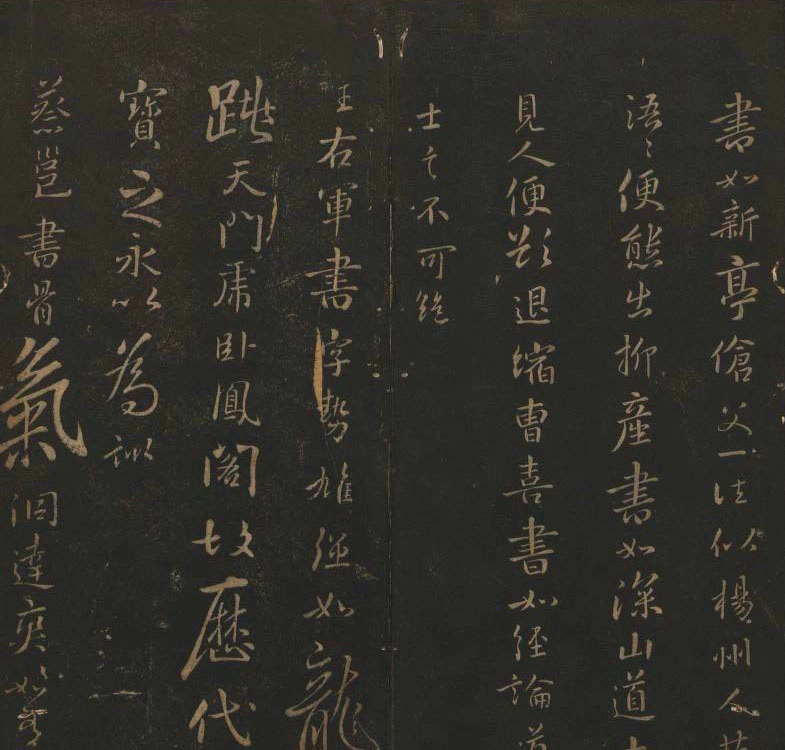 書如新亭傖父一往似楊州人共
語〻便態出柳產書如深山道士
見人便欲退縮曹喜書如經論道
士言不可絕
王右軍書字勢雄強如龍
跳天門虎臥鳳閣故歷代
寶之永以為訓
蔡邕書骨氣洞達爽〻如有